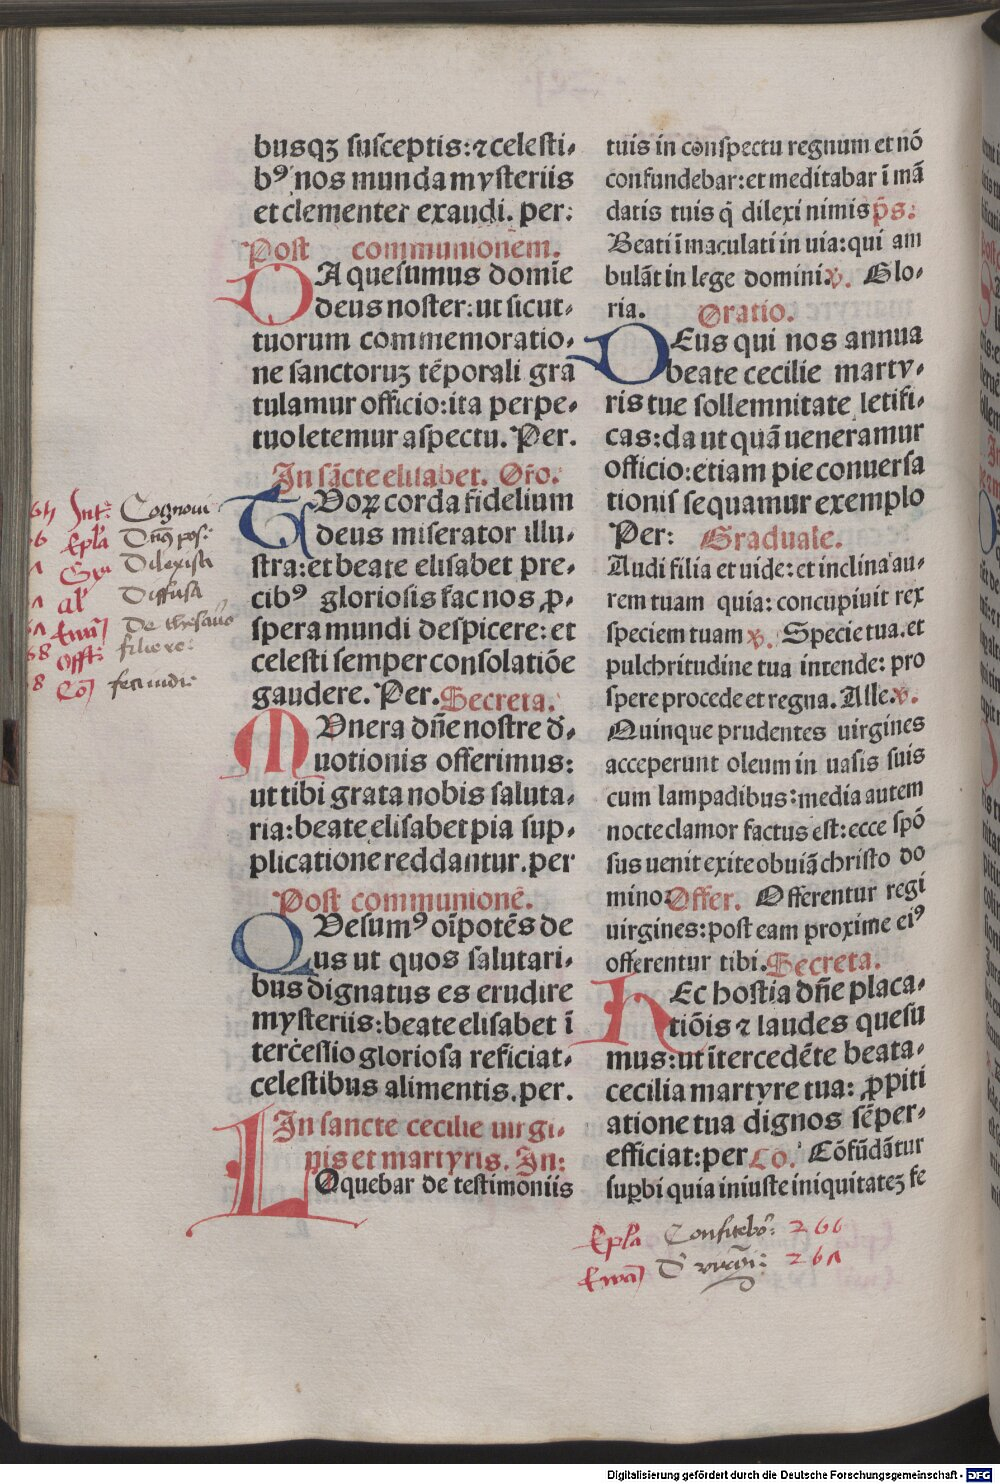 busqꝫ susceptis: ⁊ celesti⸗
bꝰ nos munda mysteriis
et clementer exaudi. per:
Post communionem.
DA quesumus domīe
deus noster: ut sicut⸗
tuorum commemoratio⸗
ne sanctoruꝫ tēporali gra
tulamur officio: ita perpe⸗
tuo letemur aspectu. Per.
In sācte elisabet. Oŕo.
TUoꝝ corda fidelium
deus miserator illu⸗
stra: et beate elisabet pre⸗
cibꝰ gloriosis fac nos ꝓ⸗
spera mundi despicere: et
celesti semper consolatiōe
gaudere. Per. Secreta.
MUnera dn̄e nostre d̄⸗
uotionis offerimus:
ut tibi grata nobis saluta⸗
ria: beate elisabet pia sup⸗
plicatione reddantur. per
Post communionē.
QUesumꝰ oīpotēs de
us ut quos salutari⸗
bus dignatus es erudire
mysteriis: beate elisabet ī
tercessio gloriosa reficiat⸗
celestibus alimentis. per.
In sancte cecilie uirgi⸗
nis et martyris. In:
LOquebar de testimoniis
Int: Cognoui
Epla
Gra Dilexisti
Al' Diffusa
Ewā De thesauro
Offt: filie re:
Cō fecundi:
tuis in conspectu regnum et nō
confundebar: et meditabar ī mā
datis tuis q̄ dilexi nimis p̄s:
Beati īmaculati in uia: qui am
bulāt in lege domini. v. Glo⸗
ria. Oratio.
DEus qui nos annua
beate cecilie marty⸗
ris tue sollemnitate letifi⸗
cas: da ut quā ueneramur
officio: etiam pie conuersa
tionis sequamur exemplo
Per: Graduale.
Audi filia et uide: et inclina au⸗
rem tuam quia: concupiuit rex
speciem tuam v. Specie tua. et
pulchritudine tua intende: pro
spere procede et regna. Alle. v.
Quinque prudentes uirgines
acceperunt oleum in uasis suis
cum lampadibus: media autem
nocte clamor factus est: ecce spō
sus uenit exite obuiā christo do
mino: Offer. Offerentur regi
uirgines: post eam proxime eiꝰ
offerentur tibi. Secreta.
HEc hostia dn̄e placa⸗
tiōis ⁊ laudes quesu
mus: ut ītercedēte beata⸗
cecilia martyre tua: ꝓpiti
atione tua dignos sēper⸗
efficiat: per Co. Cōfūdātur
suꝑbi quia iniuste iniquitateꝫ fe
Epla Confitebor: 266
Ewā D virgī: 267
Digitalisierung gefördert durch die Deutsche Forschungsgemeinschaft - DFG